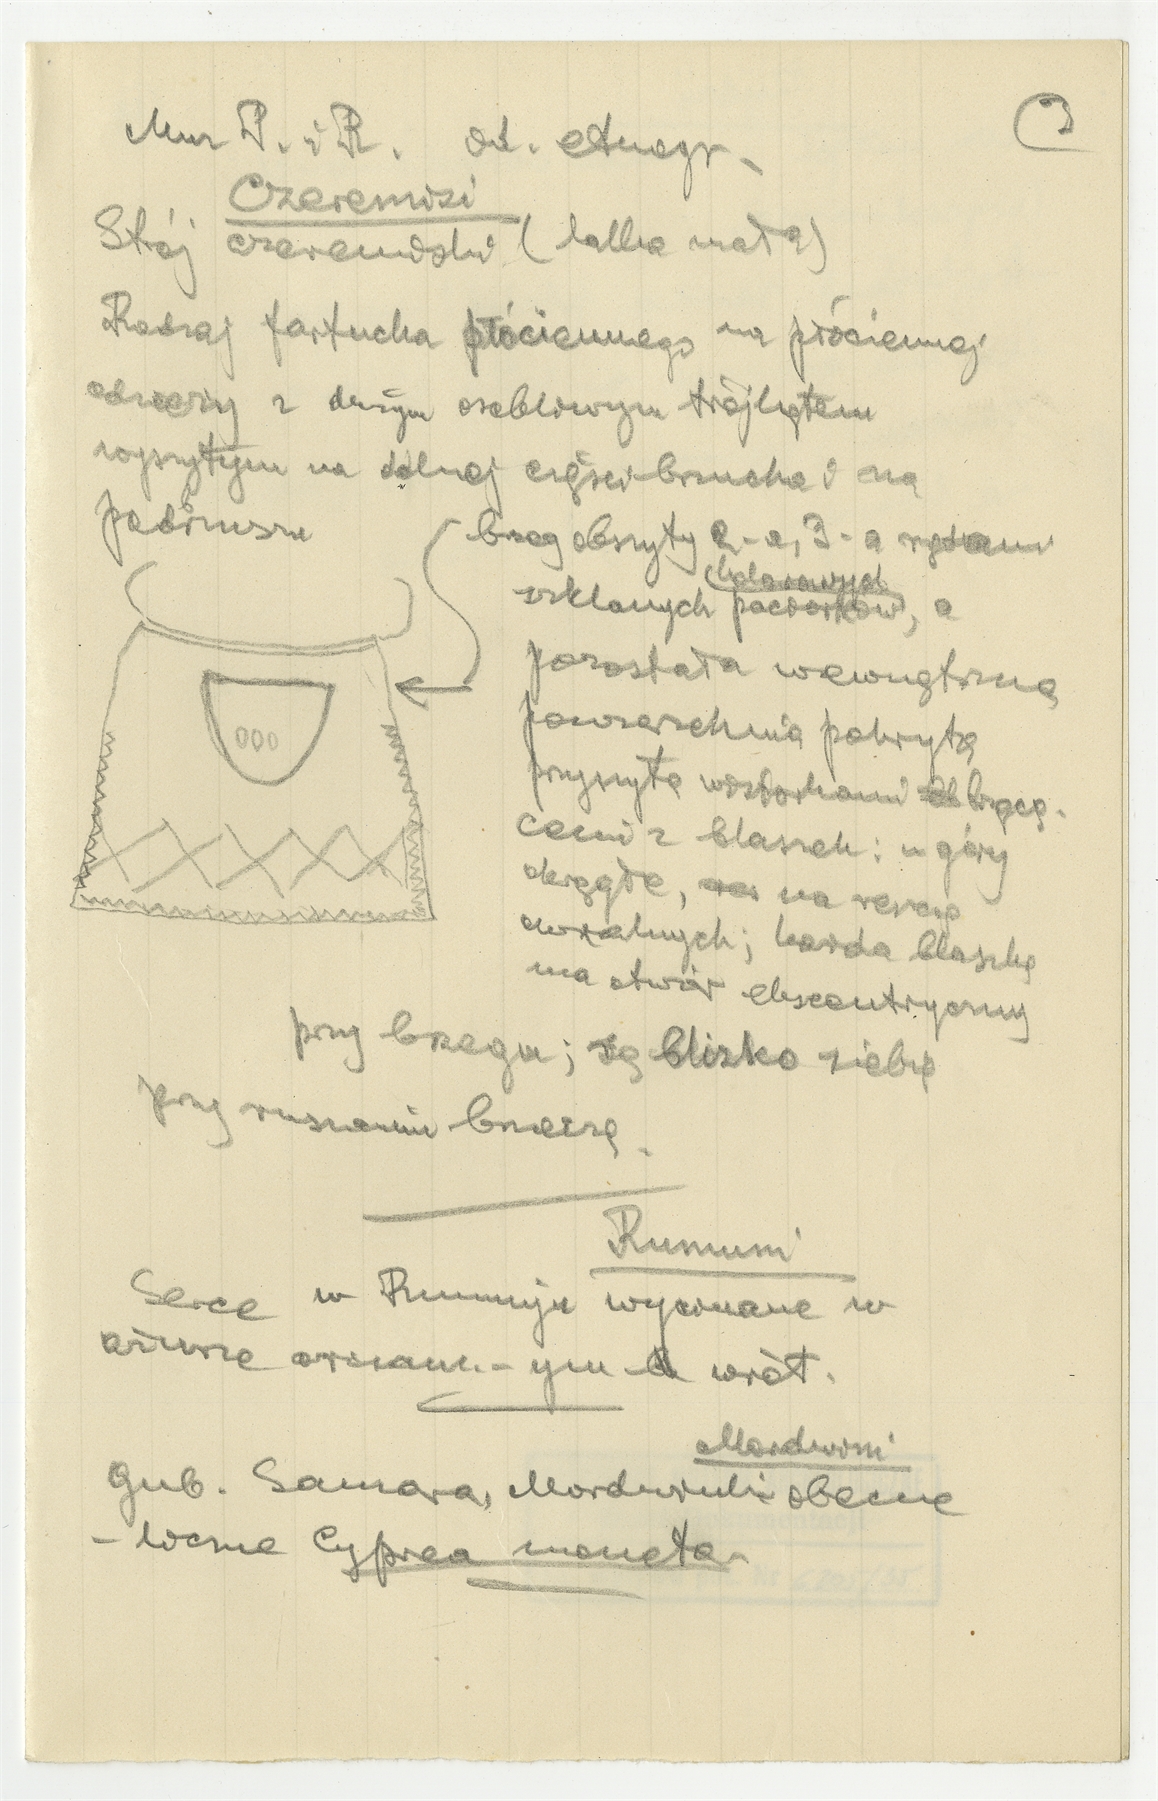 3
Muz P. i R. od. etnogr.
Czeremisi
Strój czeremiski (lalka mała)
Rodzaj fartucha płóciennego na płóciennej
odzieży z dużym osobliwym trójkątem
wyszytym na dolnej części brzucha i na
podbrzuszu
brzeg obszyty 2-a, 3-a rzędami
kolorowych
szklanych paciorków, a
pozostała wewnętrzna
powierzchnia pokryta
przyszytą
brzęcą-
cemi z blaszek: u góry
okrągłe, na
owalnych; każda blaszka
ma otwór ekscentryczny
przy brzegu; są blizko siebie
przy ruszaniu brzęczą.
Rumuni
Serce w Rumunji wycinane w
ażurze ornam.-ym wrót.
Mordwini
Gub. Samara, Mordwinki obecne
- liczne Cyprea moneta.